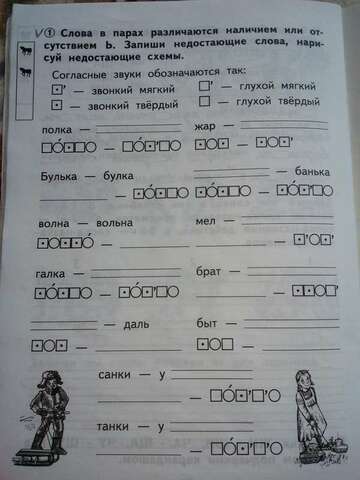 ① Слова в парах различаются наличием или от-
сутствием Ь. Запиши недостающие слова, нари-
суй недостающие схемы.
Согласные звуки обозначаются так:
— звонкий мягкий — глухой мягкий
— звонкий твёрдый — глухой твёрдый
полка — жар —
Булька — булка — банька
волна — вольна мел —
галка — брат —
— даль быт —
санки — у
танки — у